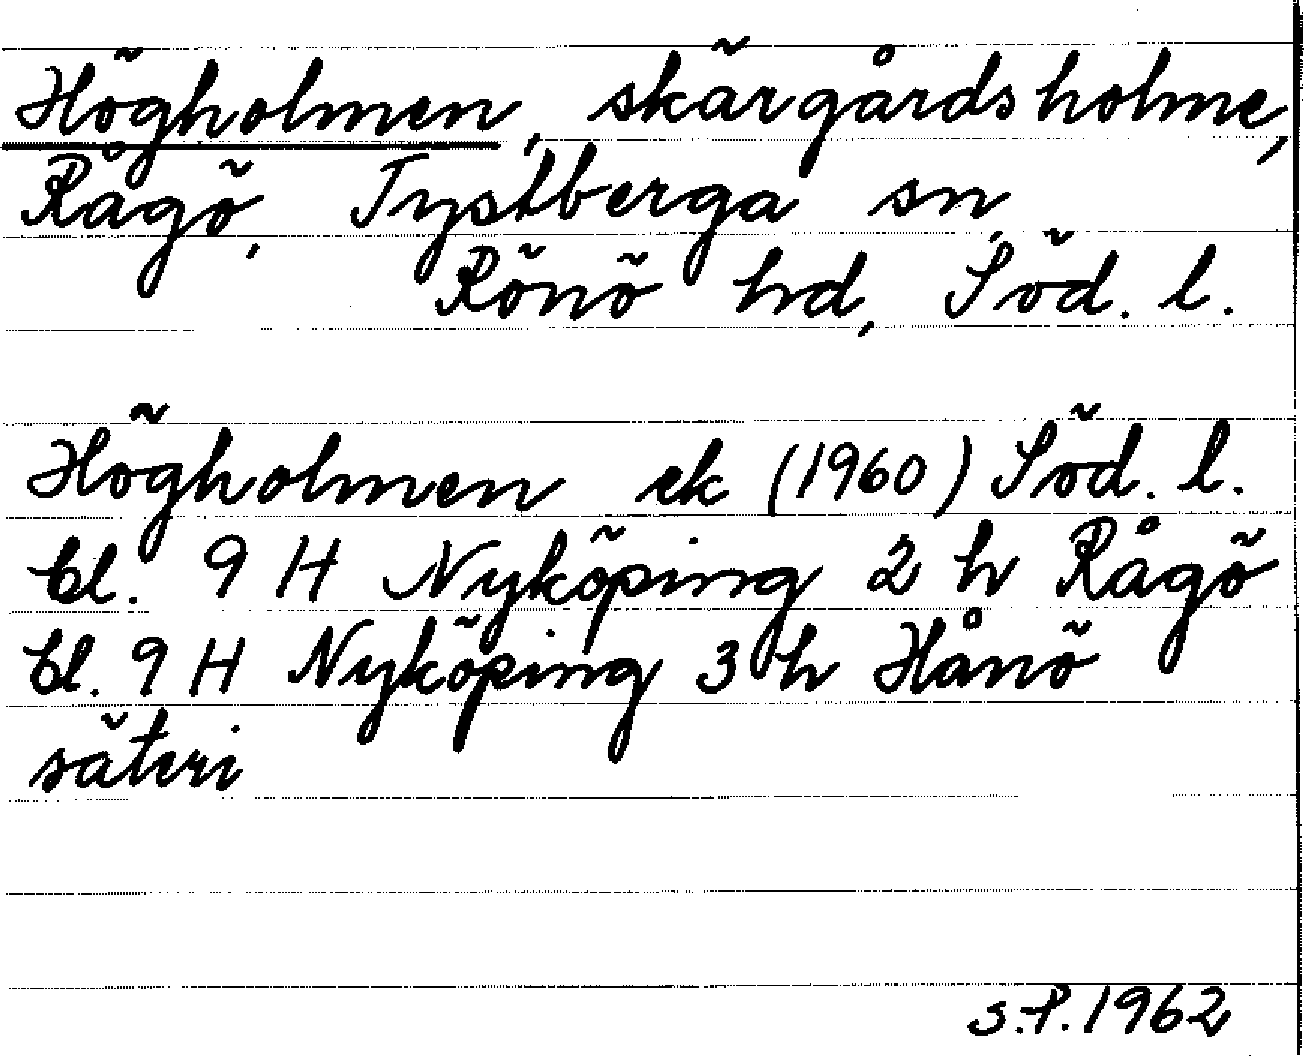 Högholmen, skärgårdsholme,
Rågö, Tystberga sn,
Rönö hd, Söd. l.
Högholmen ek (1960) Söd. l.
bl. 9 H Nyköping 2 h Rågö
bl. 9 H Nyköping 3 h Hånö
säteri
S.P. 1962